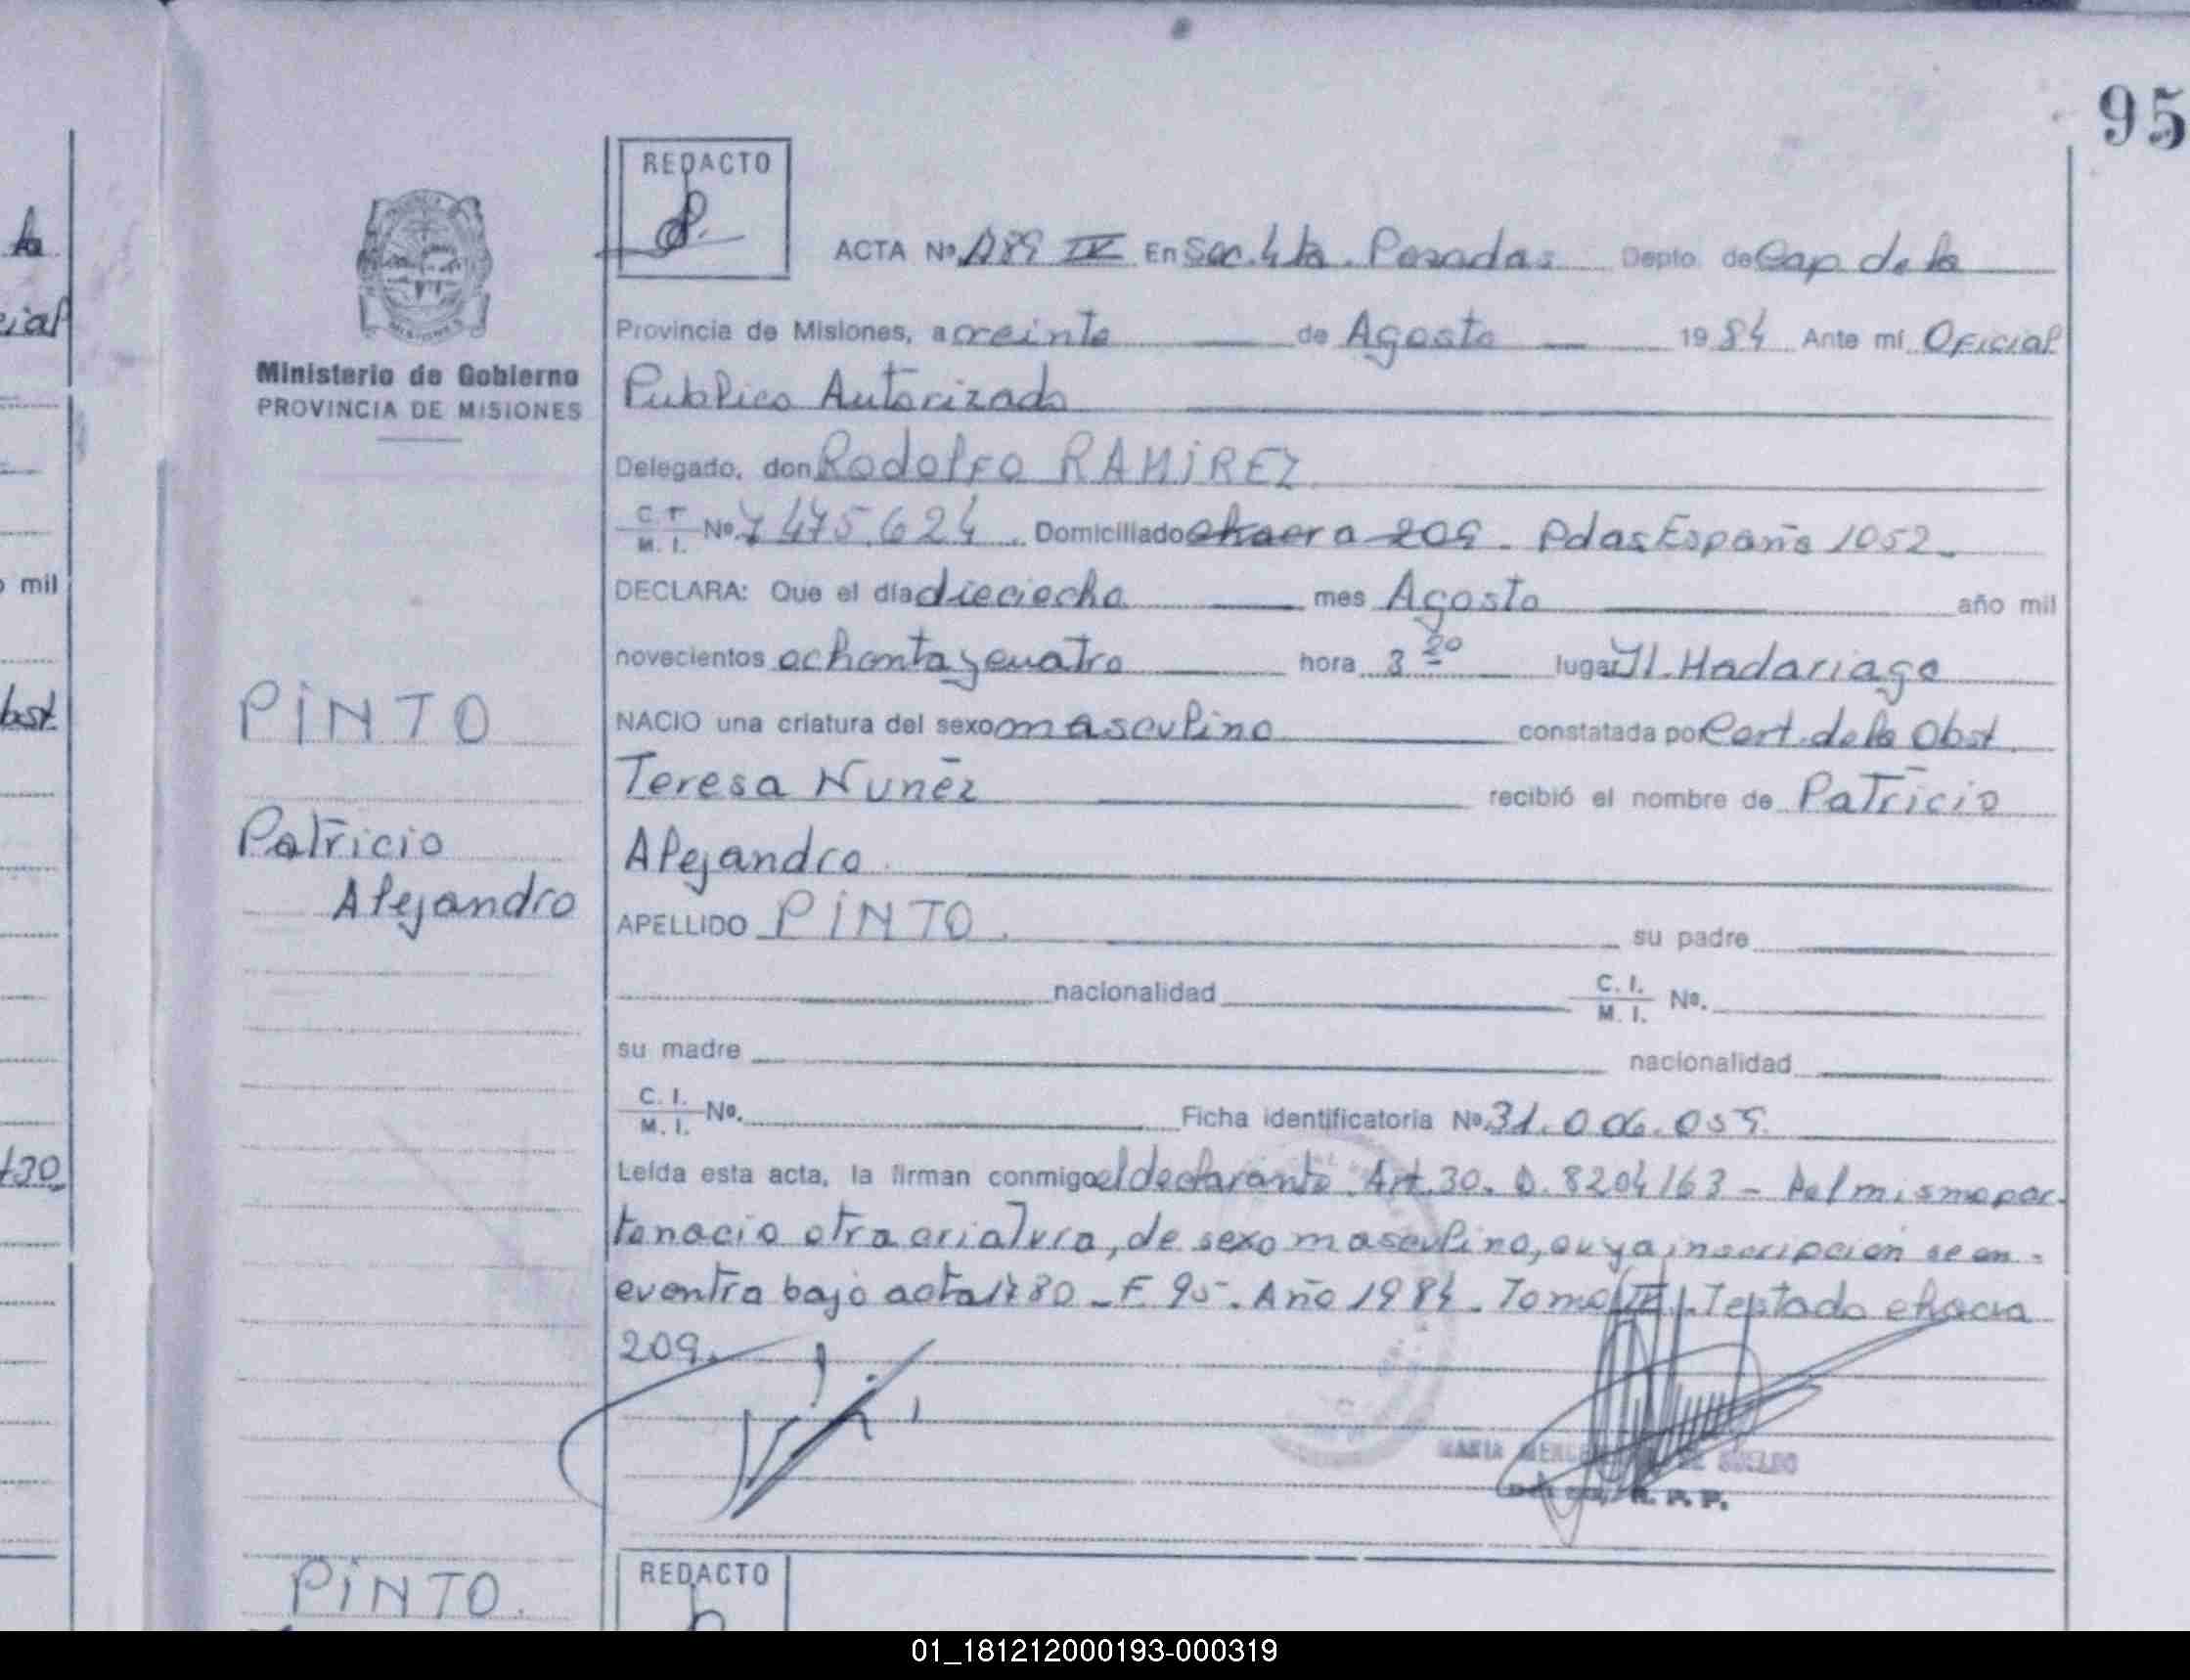 95
REDACTO
ACTA Nº 189 IV En Sec. 4ta. Posadas Depto. de Cap de la
Provincia de Misiones, a treinta de Agosto 1984 Ante mí Oficial
Publico Autorizado
Ministerio de Gobierno
PROVINCIA DE MISIONES
Delegado, don Rodolfo RAMiREZ
C. I. M. I. Nº 7 475.624. Domiciliado chacra 209. Pdas España 1052
DECLARA: Que el día dieciocho mes Agosto año mil
novecientos ochenta y cuatro hora 3 20 lugar H. Madariaga
NACIO una criatura del sexo masculino constatada por Cert. de la Obst
Teresa Nuñez recibió el nombre de Patricio
Alejandro
PiNTO
Patricio
Alejandro
APELLIDO PiNTO. su padre
nacionalidad C. I. M. I. Nº.
su madre nacionalidad
C. I. M. I. Nº. Ficha identificatoria Nº 31.006.059.
Leída esta acta, la firman conmigo el declarante. Art. 30. D. 8204/63 - Del mismo par-
to nacio otra criatura, de sexo masculino, cuya inscripcion se en-
cuentra bajo acta 1780 - F. 95. Año 1984. Tomo IV. Testado chacra
209.
MARIA
R. P. P.
PiNTO.
REDACTO
la
cial
o mil
bst.
130
01_181212000193-000319